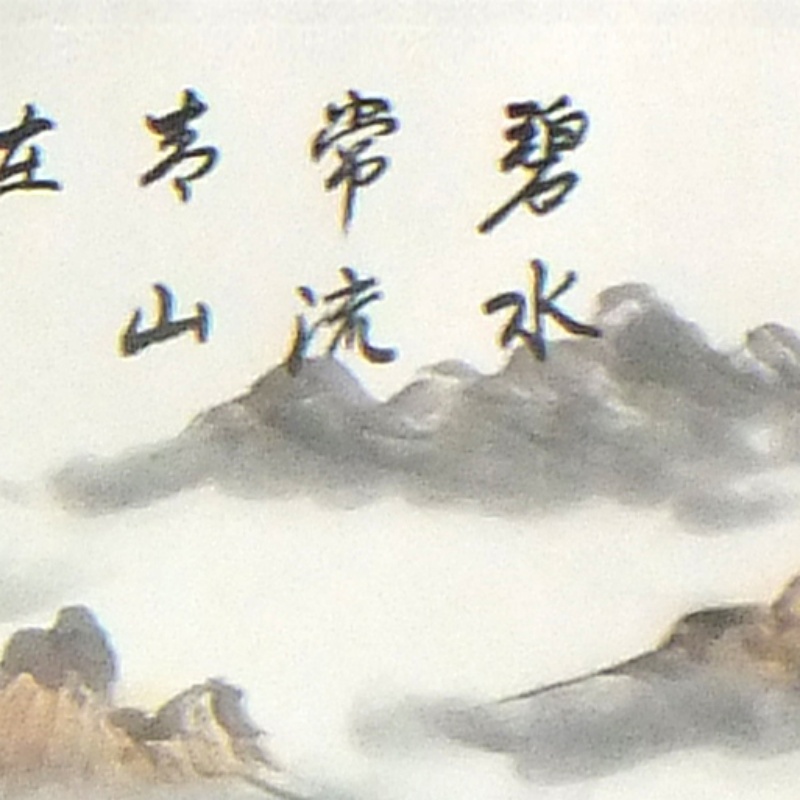 碧水
常流
青山
在